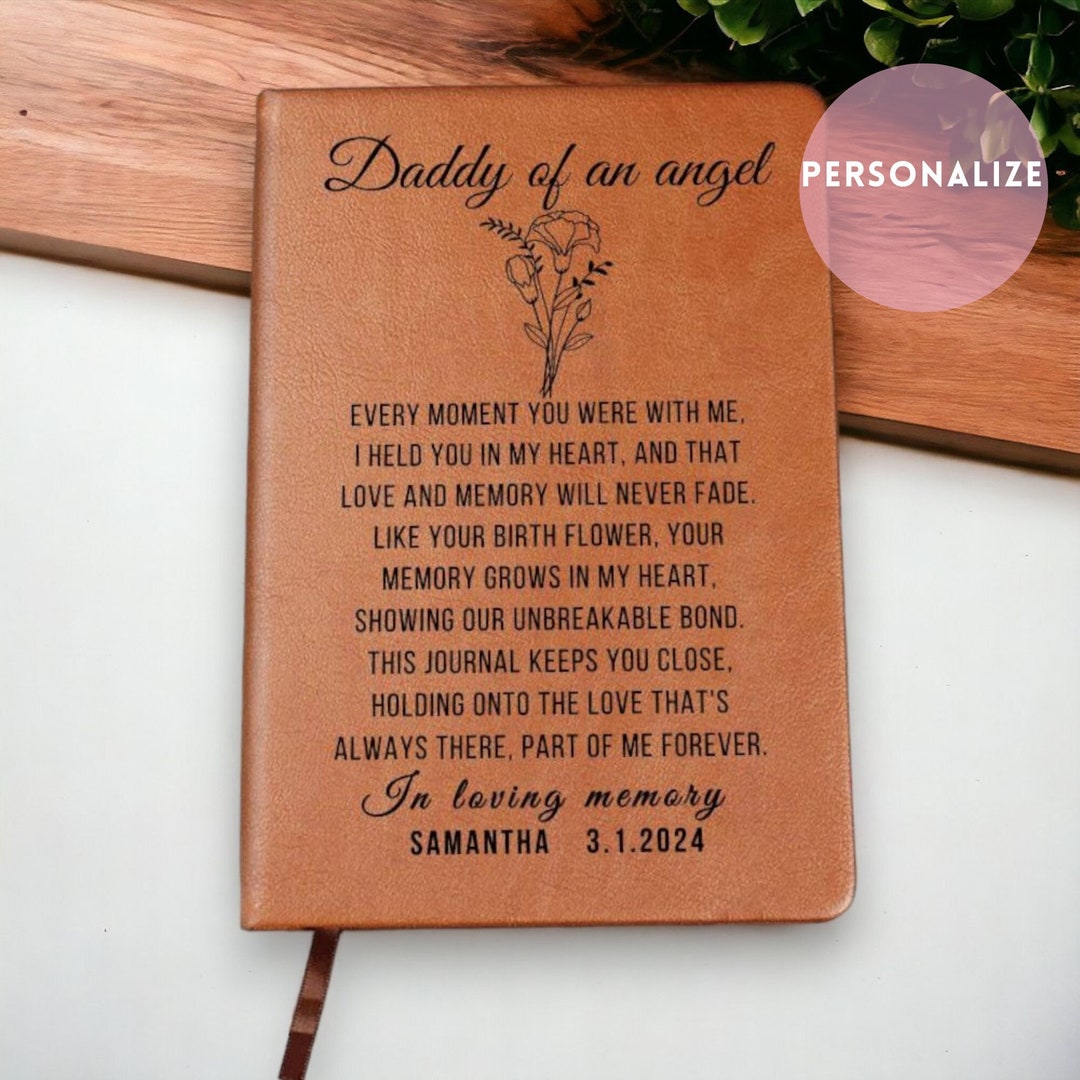 Daddy of an angel
PERSONALIZE
EVERY MOMENT YOU WERE WITH ME,
I HELD YOU IN MY HEART, AND THAT
LOVE AND MEMORY WILL NEVER FADE.
LIKE YOUR BIRTH FLOWER, YOUR
MEMORY GROWS IN MY HEART,
SHOWING OUR UNBREAKABLE BOND.
THIS JOURNAL KEEPS YOU CLOSE,
HOLDING ONTO THE LOVE THAT'S
ALWAYS THERE, PART OF ME FOREVER.
In loving memory
SAMANTHA 3.1.2024